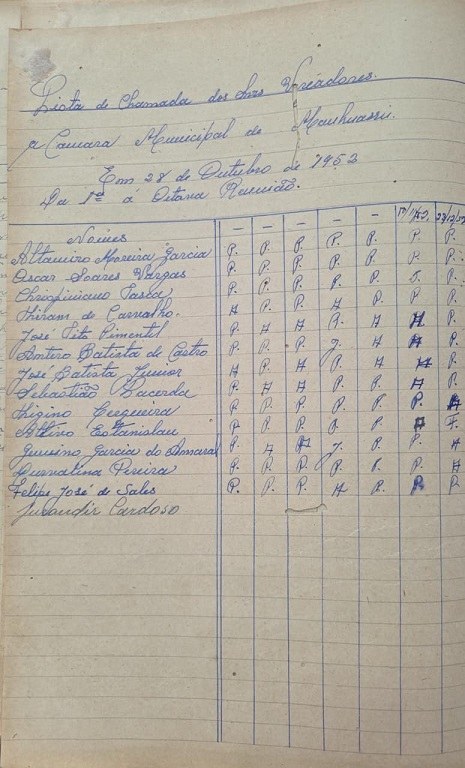 Lista de Chamada dos Snrs Vereadores.
a Camara Municipal de Manhuassu.
Em 28 de Outubro de 1952
Da 1ª á Oitava Reunião.
Nomes - - - - - 13/11/52. 27/12/52
Altamiro Moreira Garcia P. P. P. P. P. P. P.
Oscar Soares Vargas P. P. P. P. P. P.
P. P. P. P. P. P.
Hiram de Carvalho. A P. P. A P. P. P.
José Tito Pimentel P. A A P. A A P.
Antero Batista de Castro P. P. P. J. A A P.
José Batista Junior A P. A P. A A P.
Sebastião Lacerda P. A A P. P. A P.
Higino Cerqueira P. P. P. P. P. P. A
Altivo Estanislau P. P. P. P. P. A F.
Garcia do Amaral P. A A J. P. P. A
Pereira P. P. P. P. P. P. A
Felipe José de Sales P. P. P. A P. P. P.
Jurandir Cardoso